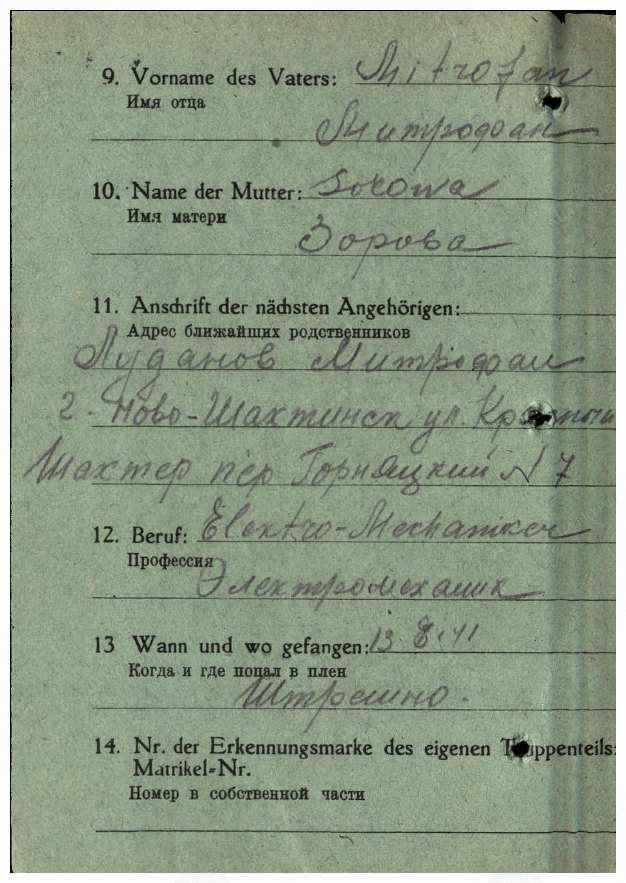 9. Vorname des Vaters: Mitrofan
Имя отца
Митрофан
10. Name der Mutter: Sorowa
Имя матери
Зорова
11. Anschrift der nächsten Angehörigen:
Адрес ближайших родственников
Луданов Митрофан
г. Ново-Шахтинск ул. Красный
Шахтер пер Горняцкий N 7
12. Beruf: Elektro-Mechaniker
Профессия
Электромеханик
13 Wann und wo gefangen: 13.8.41
Когда и где попал в плен
14. Nr. der Erkennungsmarke des eigenen Truppenteils:
Matrikel-Nr.
Номер в собственной части